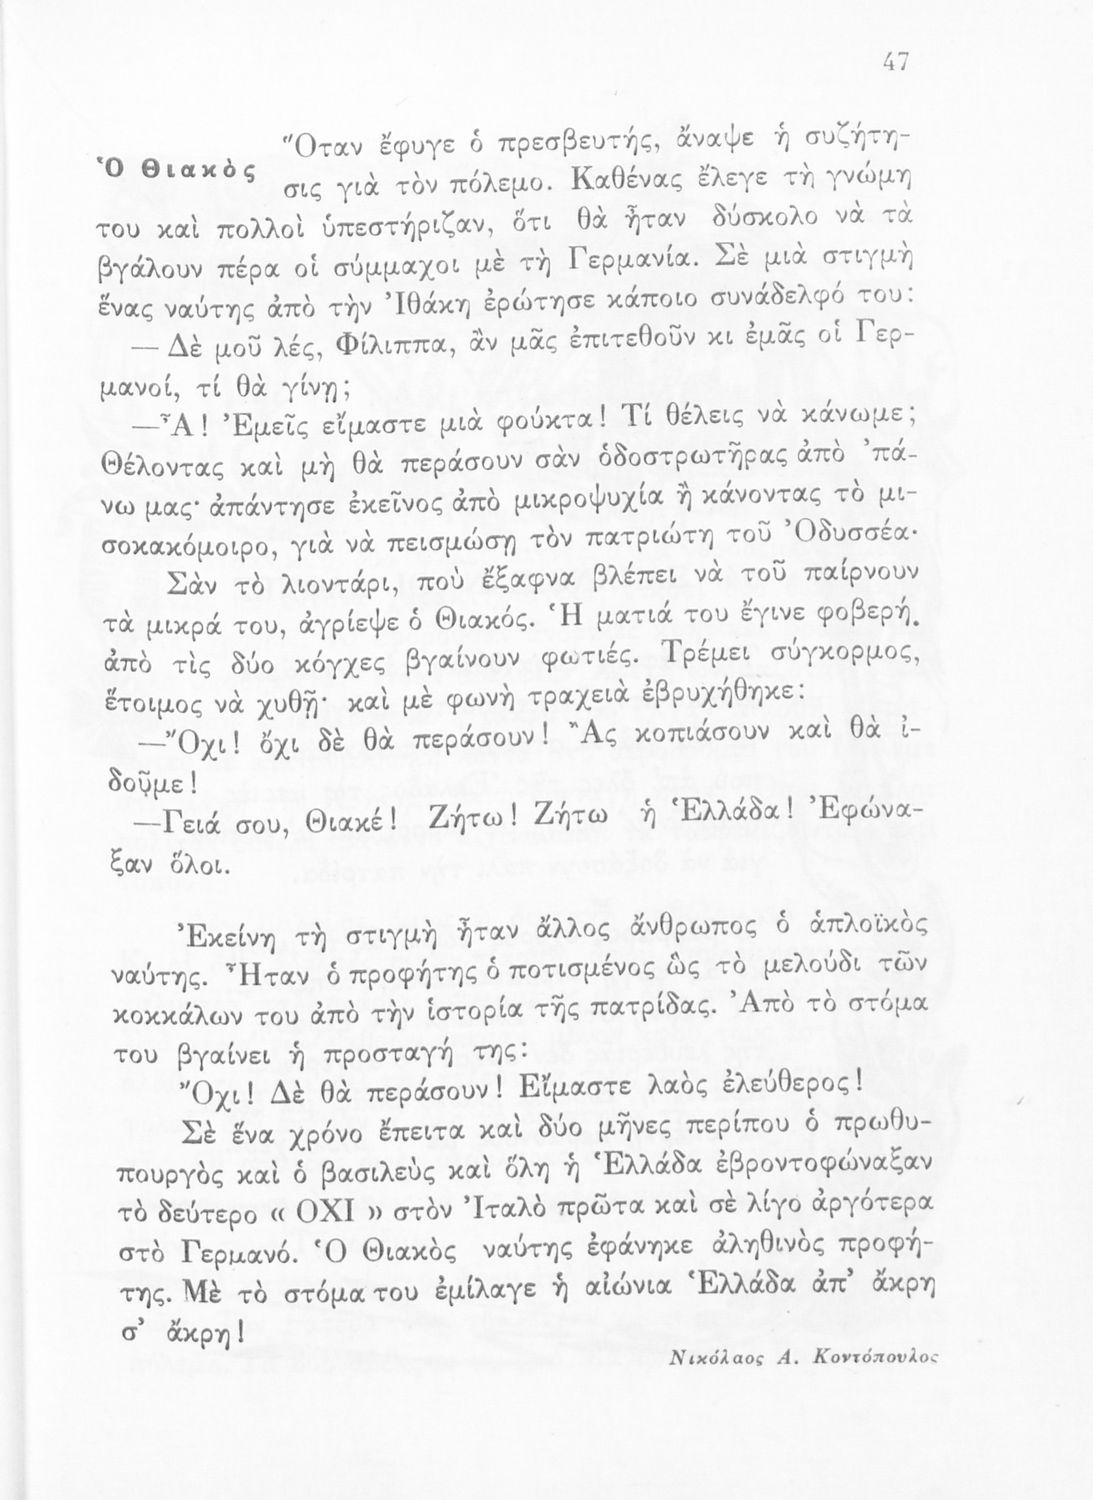 47
Ὁ Θιακὸς
Ὅταν ἔφυγε ὁ πρεσβευτής, ἄναψε ἡ συζήτη-
σις γιὰ τὸν πόλεμο. Καθένας ἔλεγε τὴ γνώμη
του καὶ πολλοὶ ὑπεστήριζαν, ὅτι θὰ ἦταν δύσκολο νὰ τὰ
βγάλουν πέρα οἱ σύμμαχοι μὲ τὴ Γερμανία. Σὲ μιὰ στιγμὴ
ἕνας ναύτης ἀπὸ τὴν Ἰθάκη ἐρώτησε κάποιο συνάδελφό του:
— Δὲ μοῦ λές, Φίλιππα, ἂν μᾶς ἐπιτεθοῦν κι ἐμᾶς οἱ Γερ-
μανοί, τί θὰ γίνῃ;
—Ἆ! Ἐμεῖς εἴμαστε μιὰ φούκτα! Τί θέλεις νὰ κάνωμε;
Θέλοντας καὶ μὴ θὰ περάσουν σὰν ὁδοστρωτῆρας ἀπὸ ᾿πά-
νω μας· ἀπάντησε ἐκεῖνος ἀπὸ μικροψυχία ἢ κάνοντας τὸ μι-
σοκακόμοιρο, γιὰ νὰ πεισμώσῃ τὸν πατριώτη τοῦ Ὀδυσσέα·
Σὰν τὸ λιοντάρι, ποὺ ἔξαφνα βλέπει νὰ τοῦ παίρνουν
τὰ μικρά του, ἀγρίεψε ὁ Θιακός. Ἡ ματιά του ἔγινε φοβερή.
ἀπὸ τὶς δύο κόγχες βγαίνουν φωτιές. Τρέμει σύγκορμος,
ἕτοιμος νὰ χυθῇ· καὶ μὲ φωνὴ τραχειὰ ἐβρυχήθηκε:
—Ὄχι! ὄχι δὲ θὰ περάσουν! Ἂς κοπιάσουν καὶ θὰ ἰ-
δοῦμε!
—Γειά σου, Θιακέ! Ζήτω! Ζήτω ἡ Ἑλλάδα! Ἐφώνα-
ξαν ὅλοι.
Ἐκείνη τὴ στιγμὴ ἦταν ἄλλος ἄνθρωπος ὁ ἁπλοϊκὸς
ναύτης. Ἦταν ὁ προφήτης ὁ ποτισμένος ὣς τὸ μελούδι τῶν
κοκκάλων του ἀπὸ τὴν ἱστορία τῆς πατρίδας. Ἀπὸ τὸ στόμα
του βγαίνει ἡ προσταγή της:
Ὄχι! Δὲ θὰ περάσουν! Εἴμαστε λαὸς ἐλεύθερος!
Σὲ ἕνα χρόνο ἔπειτα καὶ δύο μῆνες περίπου ὁ πρωθυ-
πουργὸς καὶ ὁ βασιλεὺς καὶ ὅλη ἡ Ἑλλάδα ἐβροντοφώναξαν
τὸ δεύτερο « ΟΧΙ » στὸν Ἰταλὸ πρῶτα καὶ σὲ λίγο ἀργότερα
στὸ Γερμανό. Ὁ Θιακὸς ναύτης ἐφάνηκε ἀληθινὸς προφή-
της. Μὲ τὸ στόμα του ἐμίλαγε ἡ αἰώνια Ἑλλάδα ἀπ᾿ ἄκρη
σ᾿ ἄκρη!
Νικόλαος Α. Κοντόπουλος